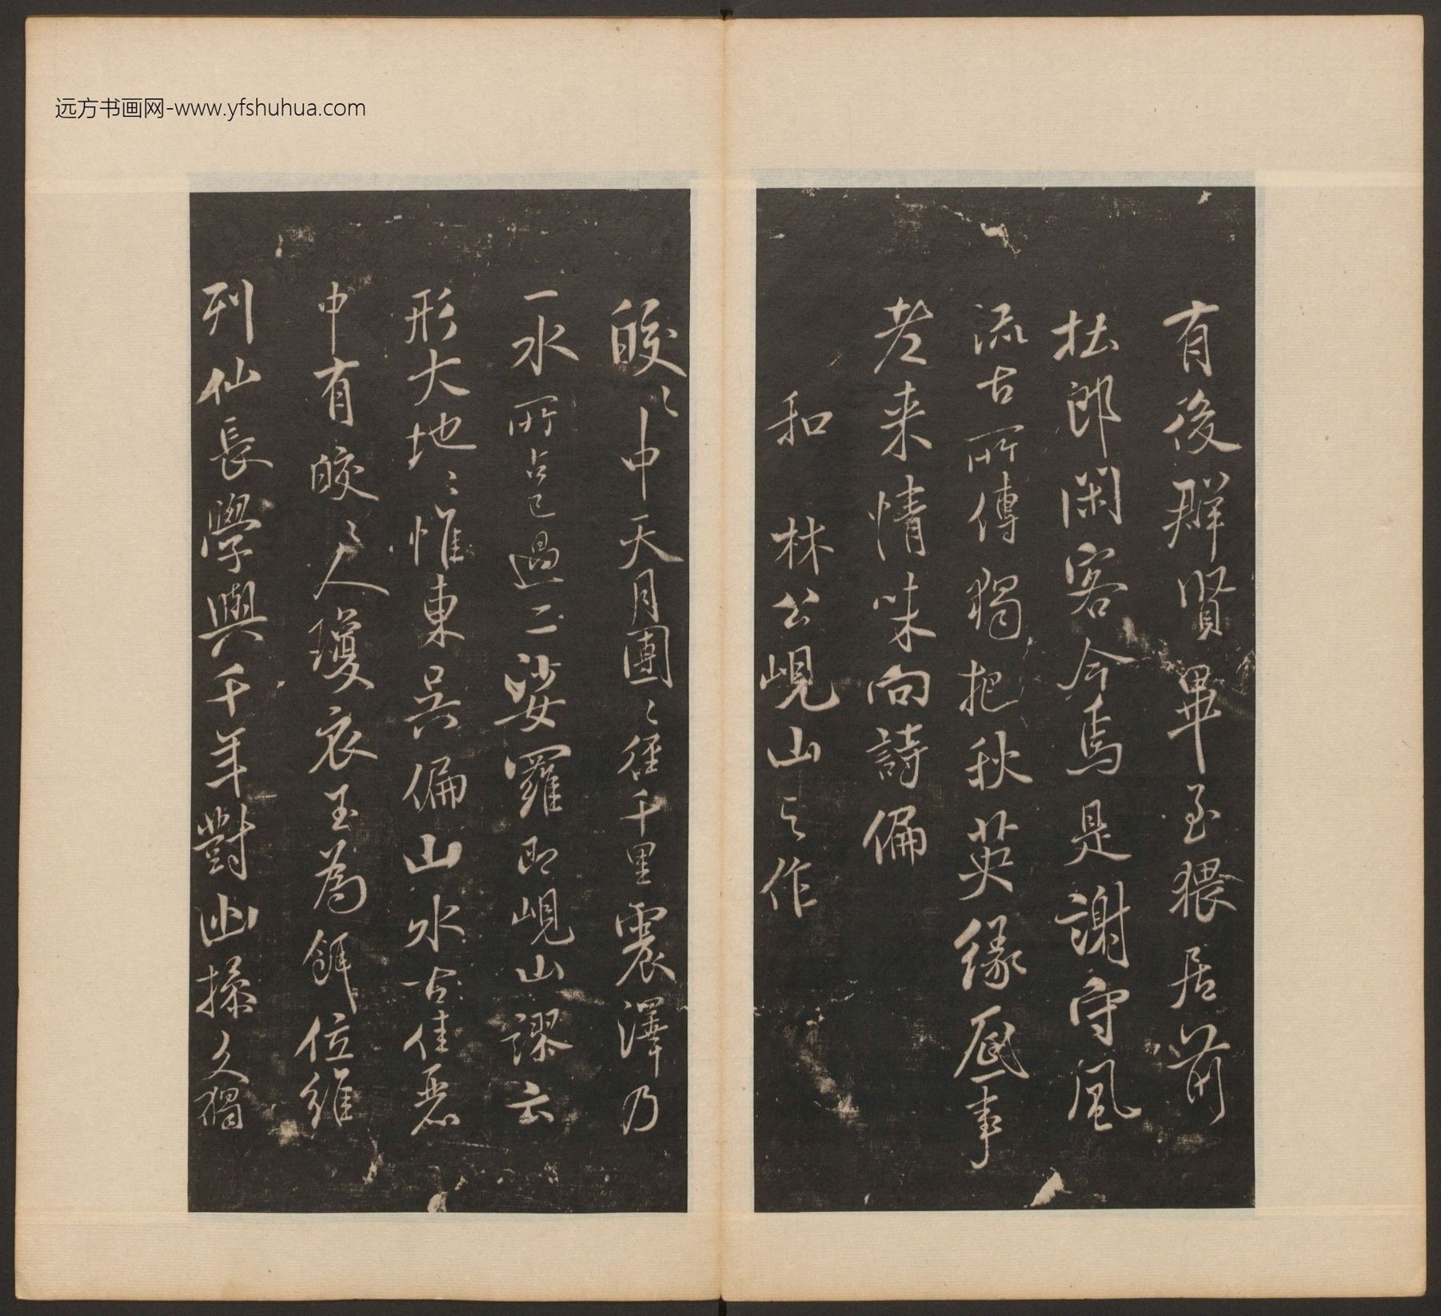 远方书画网-www.yfshuhua.com
有後群賢畢至猥居前
杜郎閑客今焉是謝守風
流古所傳獨把秋英緣底事
老来情味向詩偏
和 林公峴山之作
皎〻中天月團〻徑千里震澤乃
一水所占已過二娑羅即峴山謬云
形大地〻惟東吳偏山水古佳麗
中有皎〻人瓊衣玉為餌位維
列仙長學與千年對幽操久獨